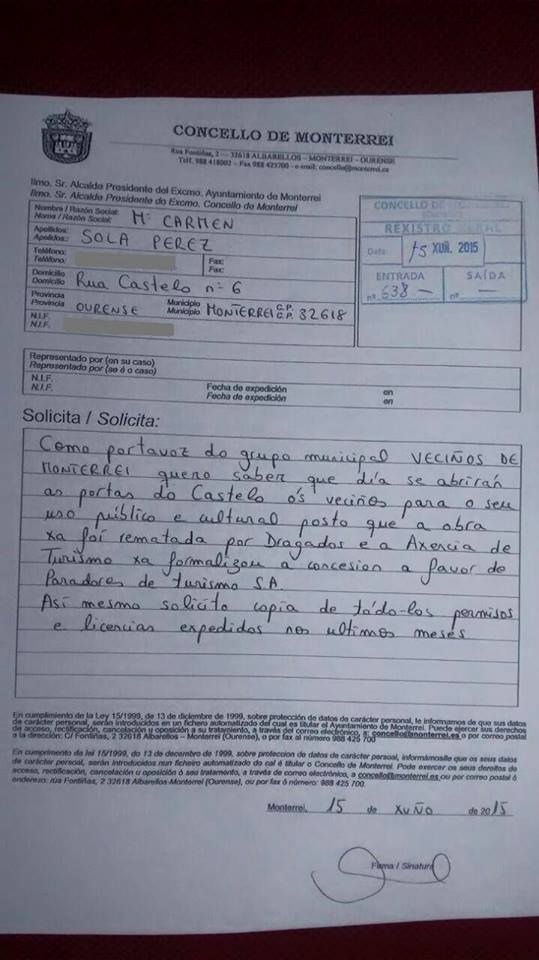 CONCELLO DE MONTERREI
Rua Fontiñas, 2 — 32618 ALBARELLOS – MONTERREI – OURENSE
Telf. 988 418002 – Fax 988 425700 - e-mail: concello@monterrei.es
Ilmo. Sr. Alcalde Presidente del Excmo. Ayuntamiento de Monterrei
Ilmo. Sr. Alcalde Presidente do Excmo. Concello de Monterrei
Nombre / Razón Social:
Nome / Razón Social: Mª CARMEN
Apellidos:
Apelidos: SOLA PEREZ
Teléfono: Fax:
Teléfono: Fax:
Domicilio
Domicilio Rua Castelo nº 6
Provincia Municipio C.P.
Provincia OURENSE Municipio MONTERREI C.P. 32618
N.I.F.
N.I.F.
CONCELLO DE MONTERREI
REXISTRO XERAL
Data: 15 XUÑ. 2015
ENTRADA SAÍDA
nº 638 — nº —
Representado por (en su caso)
Representado por (se é o caso)
N.I.F. Fecha de expedición en
N.I.F. Fecha de expedición en
Solicita / Solicita:
Como portavoz do grupo municipal VECIÑOS DE
MONTERREI quero saber que día se abrirán
as portas do Castelo ós veciños para o seu
uso público e cultural posto que a obra
xa foi rematada por Dragados e a Axencia de
Turismo xa formalizou a concesion a favor de
Paradores de turismo SA.
Así mesmo solicito copia de tódo-los permisos
e licencias expedidos nos ultimos meses
En cumplimiento de la Ley 15/1999, de 13 de diciembre de 1999, sobre protección de datos de carácter personal, le informamos de que sus datos
de carácter personal, serán introducidos en un fichero automatizado del cual es titular el Ayuntamiento de Monterrei. Puede ejercer sus derechos
de acceso, rectificación, cancelación u oposición a su tratamiento, a través del correo electrónico, a: concello@monterrei.es o por correo postal
a la dirección: C/ Fontiñas, 2 32618 Albarellos – Monterrei (Ourense), o por fax al número 988 425 700
En cumprimento da lei 15/1999, do 13 de decembro de 1999, sobre proteccion de datos de carácter personal, informámoslle que os seus datos
de carácter persoal, serán introducidos nun ficheiro automatizado do cal é titular o Concello de Monterrei. Pode exercer os seus dereitos de
acceso, rectificación, cancelación u oposición ó seu tratamento, a través de correo electrónico, a concello@monterrei.es ou por correo postal ó
enderezo: rúa Fontiñas, 2 32618 Albarellos-Monterrei (Ourense), ou por fax ó número: 988 425 700.
Monterrei, 15 de XUÑO de 2015
Firma / Sinatura